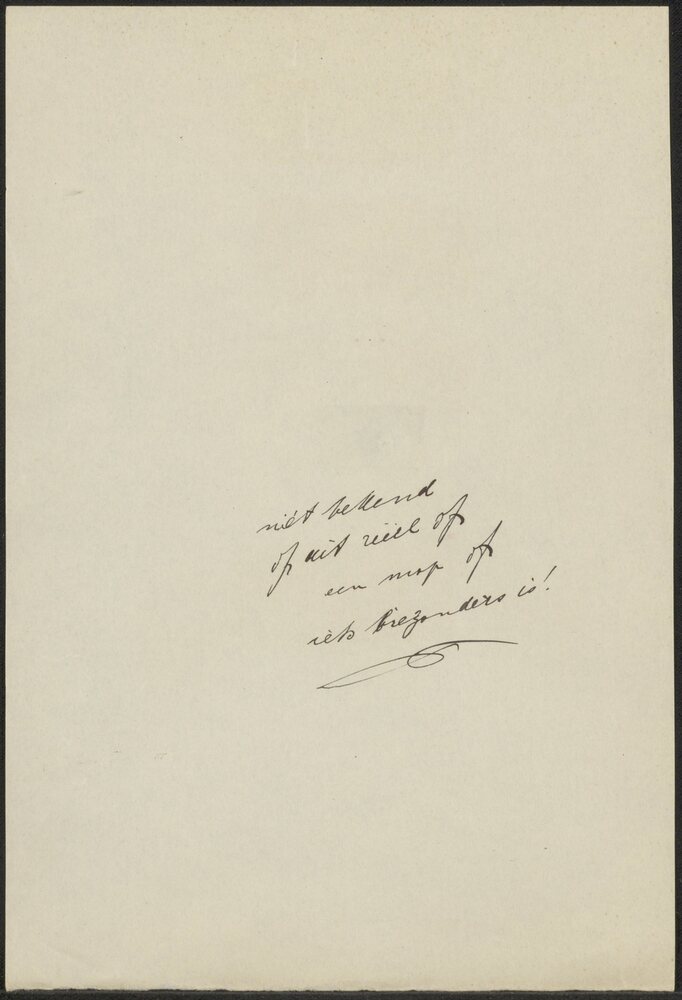 niet bekend
of dit reëel of
een mop of
iets biezonders is!